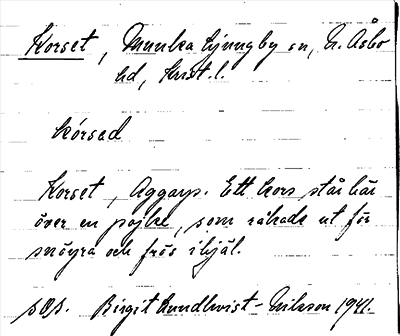 Korset, Munka Ljungby sn, N. Åsbo
hd, Krist. l.
kórsad
Korset, Aggarp. Ett kors står här
över en pojke, som råkade ut för
snöyra och frös ihjäl.
sOs. Birgit Lundkvist-Nilsson 1941.